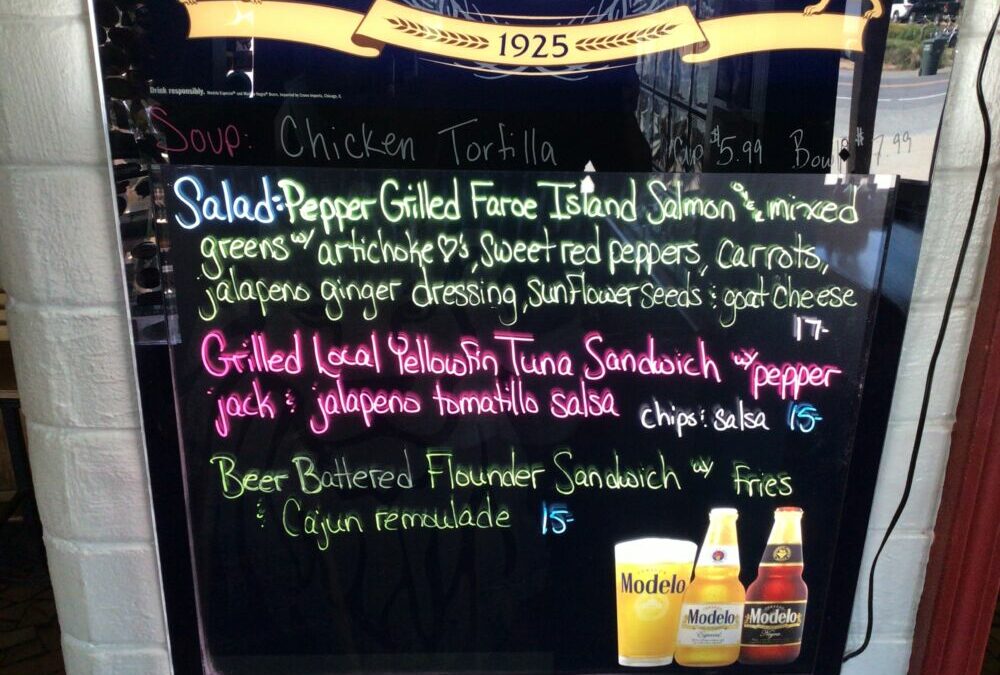 1925
Drink responsibly.
Soup: Chicken Tortilla Cup $5.99 Bowl $7.99
Salad: Pepper Grilled Faroe Island Salmon over mixed
greens w/ artichoke ♡'s, sweet red peppers, carrots,
jalapeno ginger dressing, sunflower seeds & goat cheese
17-
Grilled Local Yellowfin Tuna Sandwich w/ pepper
jack & jalapeno tomatillo salsa chips & salsa 15-
Beer Battered Flounder Sandwich w/ fries
& Cajun remoulade 15-
Modelo
Modelo
Especial
Modelo
Negra